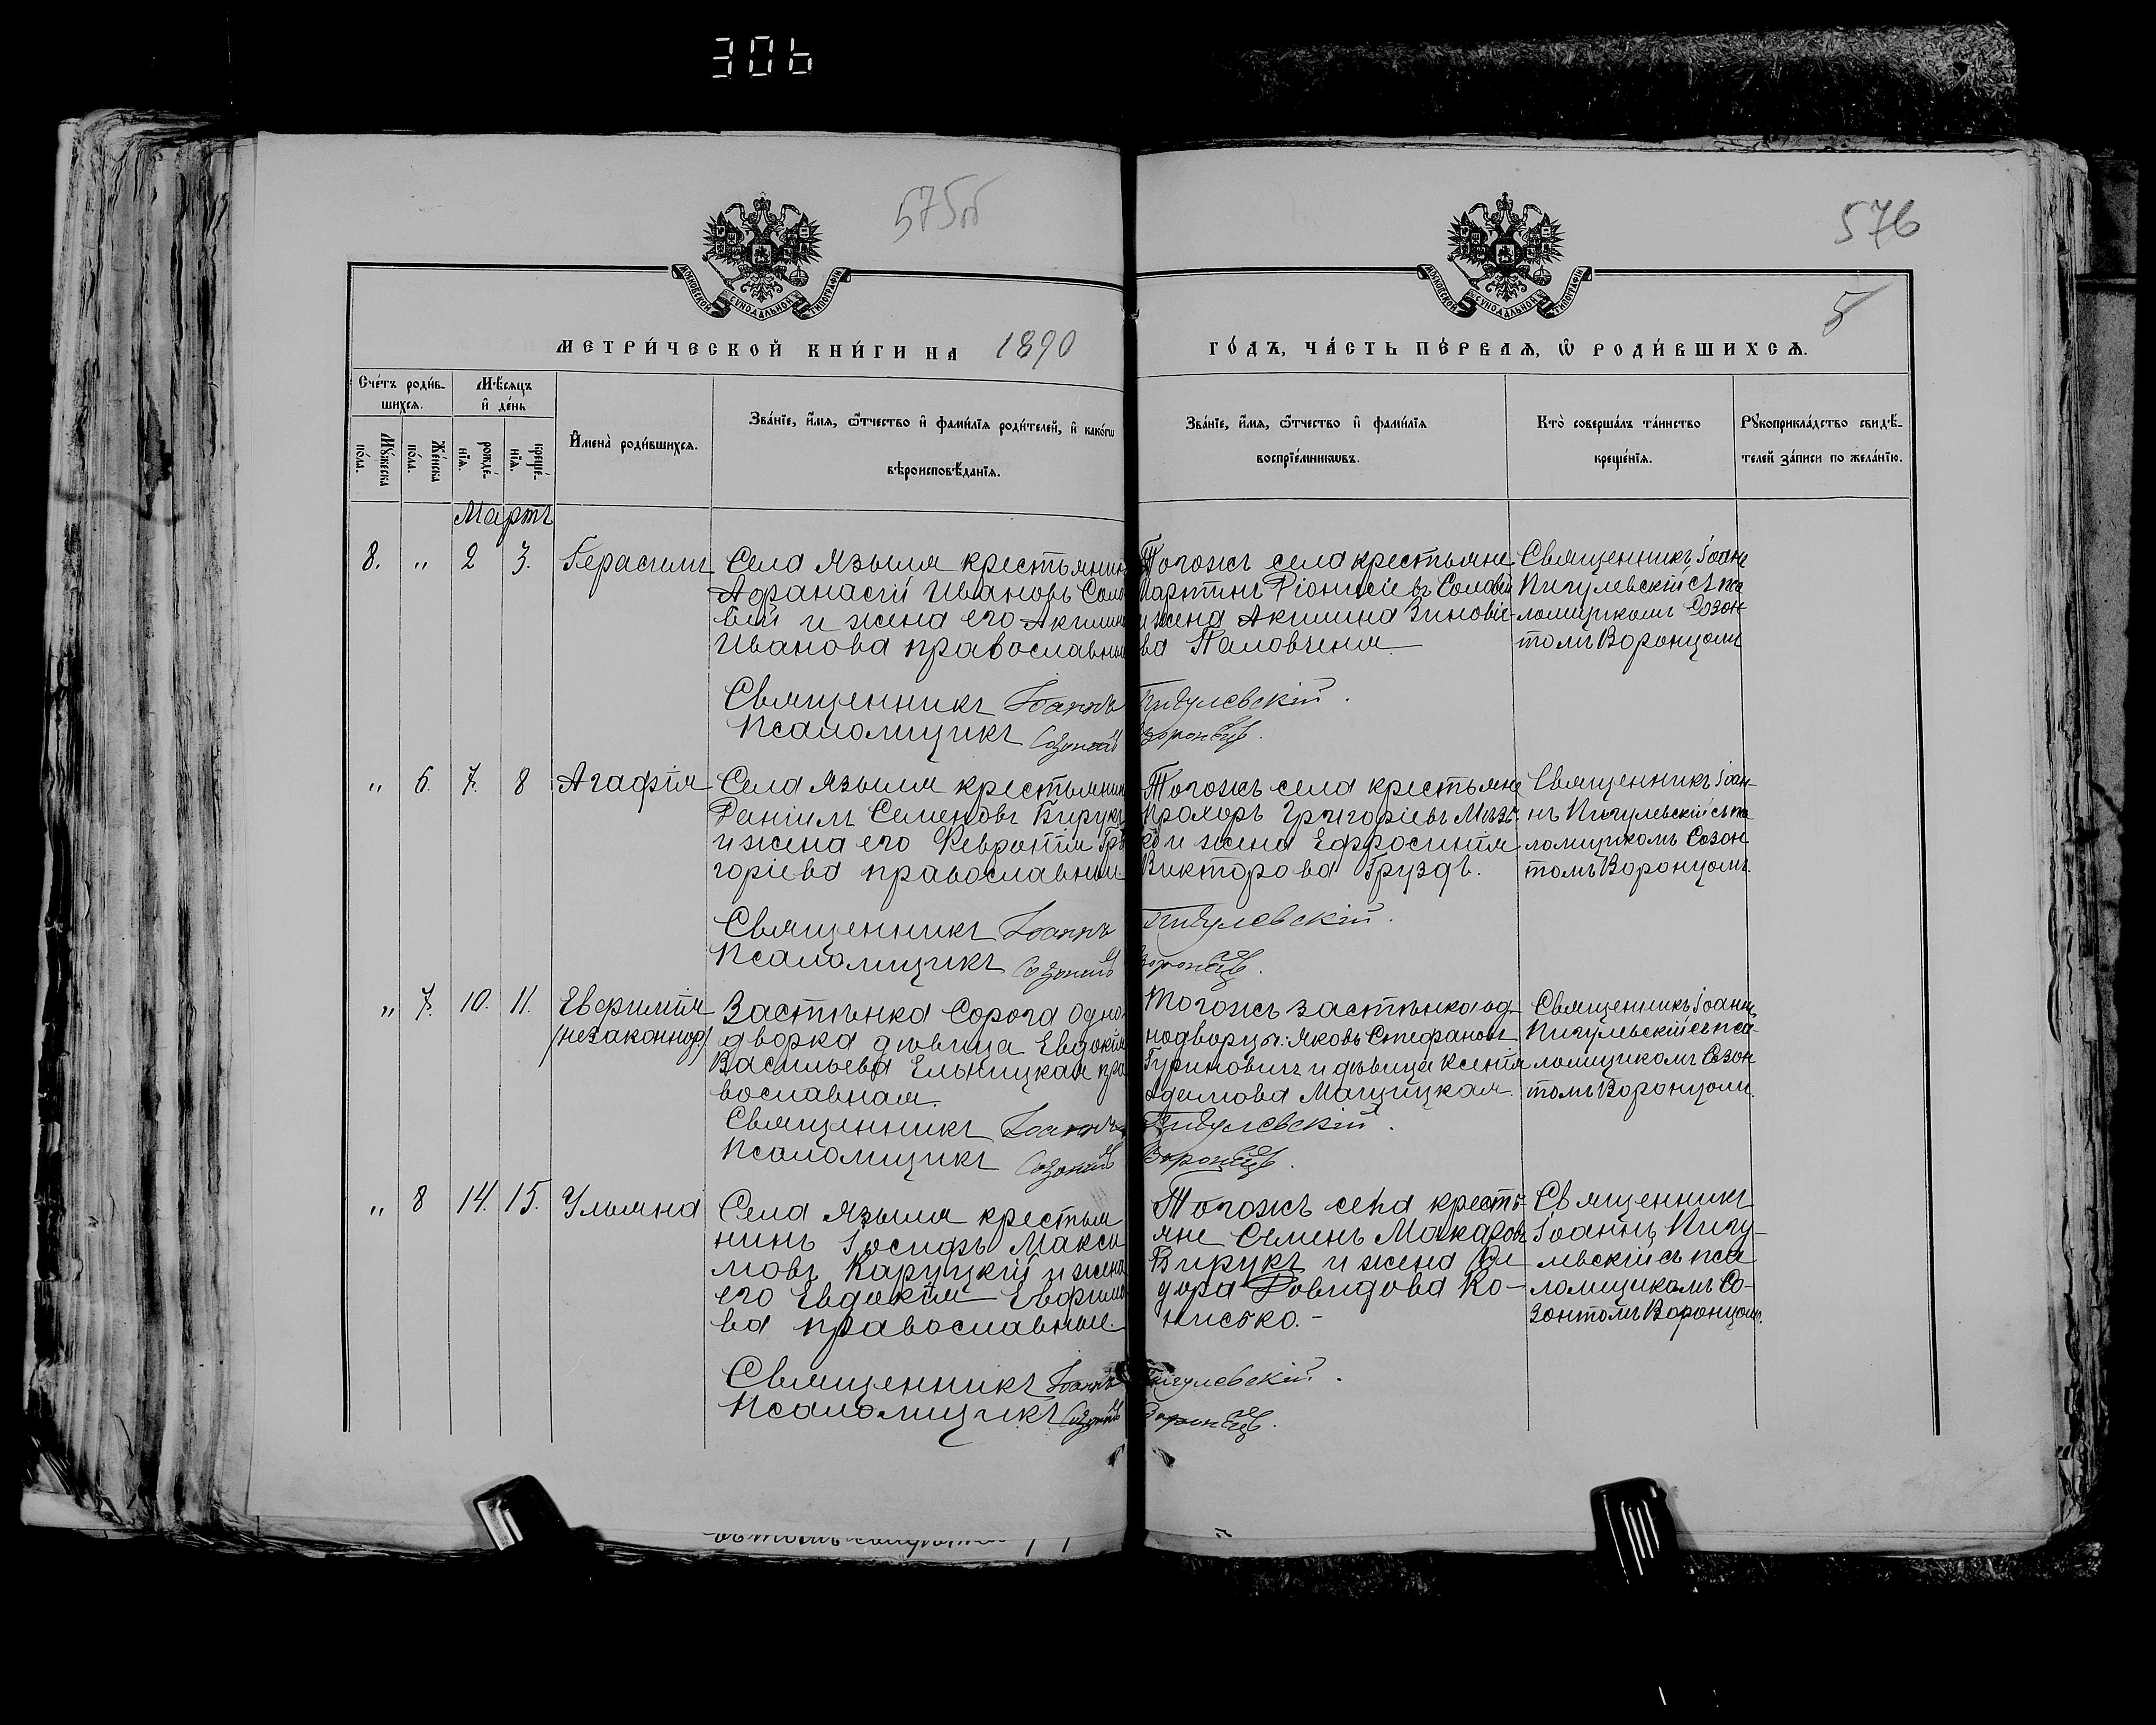 306
575об
576
5
МОСКОВСКОЙ СУНОДАЛЬНОЙ ТИПОГРАФІИ
МОСКОВСКОЙ СУНОДАЛЬНОЙ ТИПОГРАФІИ
МЕТРИ́ЧЕСКОЙ КНИ́ГИ НА 1890
ГО́ДЪ, ЧА́СТЬ ПЕ́РВАѦ, Ѡ҆ РОДИ́ВШИХСѦ.
Сче́тъ роди́в-
шихсѧ.
Мꙋ́жеска
по́ла.
Же́нска
по́ла.
Мѣ́сѧцъ
и҆ де́нь
рожде́-
нїѧ.
креще́-
нїѧ.
И҆мена̀ роди́вшихсѧ.
Зва́нїе, и҆́мѧ, ѻ҆́тчество и҆ фами́лїѧ роди́телей, и҆ како́гѡ
вѣроисповѣ́данїѧ.
Зва́нїе, и҆́мѧ, ѻ҆́тчество и҆ фами́лїѧ
воспрїе́мникѡвъ.
Кто̀ соверша́лъ та́инство
креще́нїѧ.
Рꙋкоприкла́дство свидѣ́-
телей за́писи по жела́нїю.
Мартъ
8. " 2 3. Герасимъ
Села Языля крестьянинъ
Афанасій Ивановъ Соло
вей и жена его Акилина
Иванова православные
Тогожъ села крестьяне
Мартинъ Діонисіевъ Соловей
и жена Акилина Зиновіе-
ва
Священникъ Іоаннъ
Пигулевскій съ пса
ломщикомъ Созон
томъ Воронцомъ
Священникъ Іоаннъ Пигулевскій.
Псаломщикъ Созонтъ Воронецъ.
" 6. 7. 8 Агафія
Села Языля крестьянинъ
Даніилъ Семеновъ Бирукъ
и жена его Февронія Гри
горіева православные.
Тогожъ села крестьяне
Прохоръ Григоріевъ
и жена Ефросинія
Викторова Груздъ.
Священникъ Іоан-
нъ Пигулевскій съ пса
ломщикомъ Созон
томъ Воронцомъ.
Священникъ Іоаннъ Пигулевскій.
Псаломщикъ Созонтъ Воронецъ.
" 7. 10. 11. Евфимія
/незаконнор/
Застѣнка Сорога Одно
дворка дѣвица Евдокія
Васильева Ельницкая пра
вославная.
Тогожъ застѣнка од-
нодворцы: Яковъ Стефановъ
Гуриновичъ и дѣвица Ксенія
Адамова
Священникъ Іоаннъ
Пигулевскій съ пса-
ломщикомъ Созон
томъ Воронцомъ.
Священникъ Іоаннъ Пигулевскій.
Псаломщикъ Созонтъ Воронецъ.
" 8 14. 15. Ульяна
Села Языля крестья
нинъ Іосифъ Макси
мовъ Каруцкій и жена
его Евдокія Евфимо
ва православные.
Тогожъ села кресть-
яне Семенъ Макаровъ
Бирукъ и жена Фе
дора Довидова Ко-
Священникъ
Іоаннъ Пигу-
левскій съ пса
ломщикомъ Со-
зонтомъ Воронцомъ.
Священникъ Іоаннъ Пигулевскій.
Псаломщикъ Созонтъ Воронецъ.